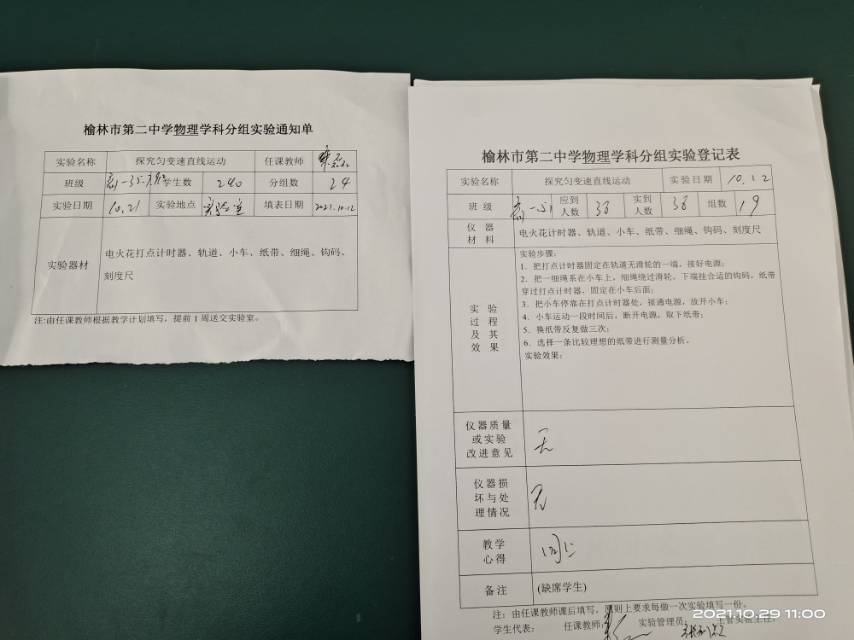 榆林市第二中学物理学科分组实验通知单
实验名称 探究匀变速直线运动 任课教师
班级 学生数 240 分组数 24
实验日期 10.21 实验地点 实验室 填表日期 2021.10.12
实验器材 电火花打点计时器、轨道、小车、纸带、细绳、钩码、
刻度尺
注:由任课教师根据教学计划填写，提前1周送交实验室。
榆林市第二中学物理学科分组实验登记表
实验名称 探究匀变速直线运动 实验日期 10.12
班级 应到人数 38 实到人数 38 组数 19
仪器材料 电火花计时器、轨道、小车、纸带、细绳、钩码、刻度尺
实验过程及其效果
实验步骤:
1．把打点计时器固定在轨道无滑轮的一端，接好电源;
2．把一细绳系在小车上，细绳绕过滑轮，下端挂合适的钩码，纸带
穿过打点计时器，固定在小车后面;
3．把小车停靠在打点计时器处，接通电源，放开小车;
4．小车运动一段时间后，断开电源，取下纸带;
5．换纸带反复做三次;
6．选择一条比较理想的纸带进行测量分析。
实验效果:
仪器质量或实验改进意见 无
仪器损坏与处理情况 无
教学心得 同上
备注 (缺席学生)
注：由任课教师课后填写，原则上要求每做一次实验填写一份。
学生代表： 任课教师: 实验管理员: 主管实验主任:
2021.10.29 11:00